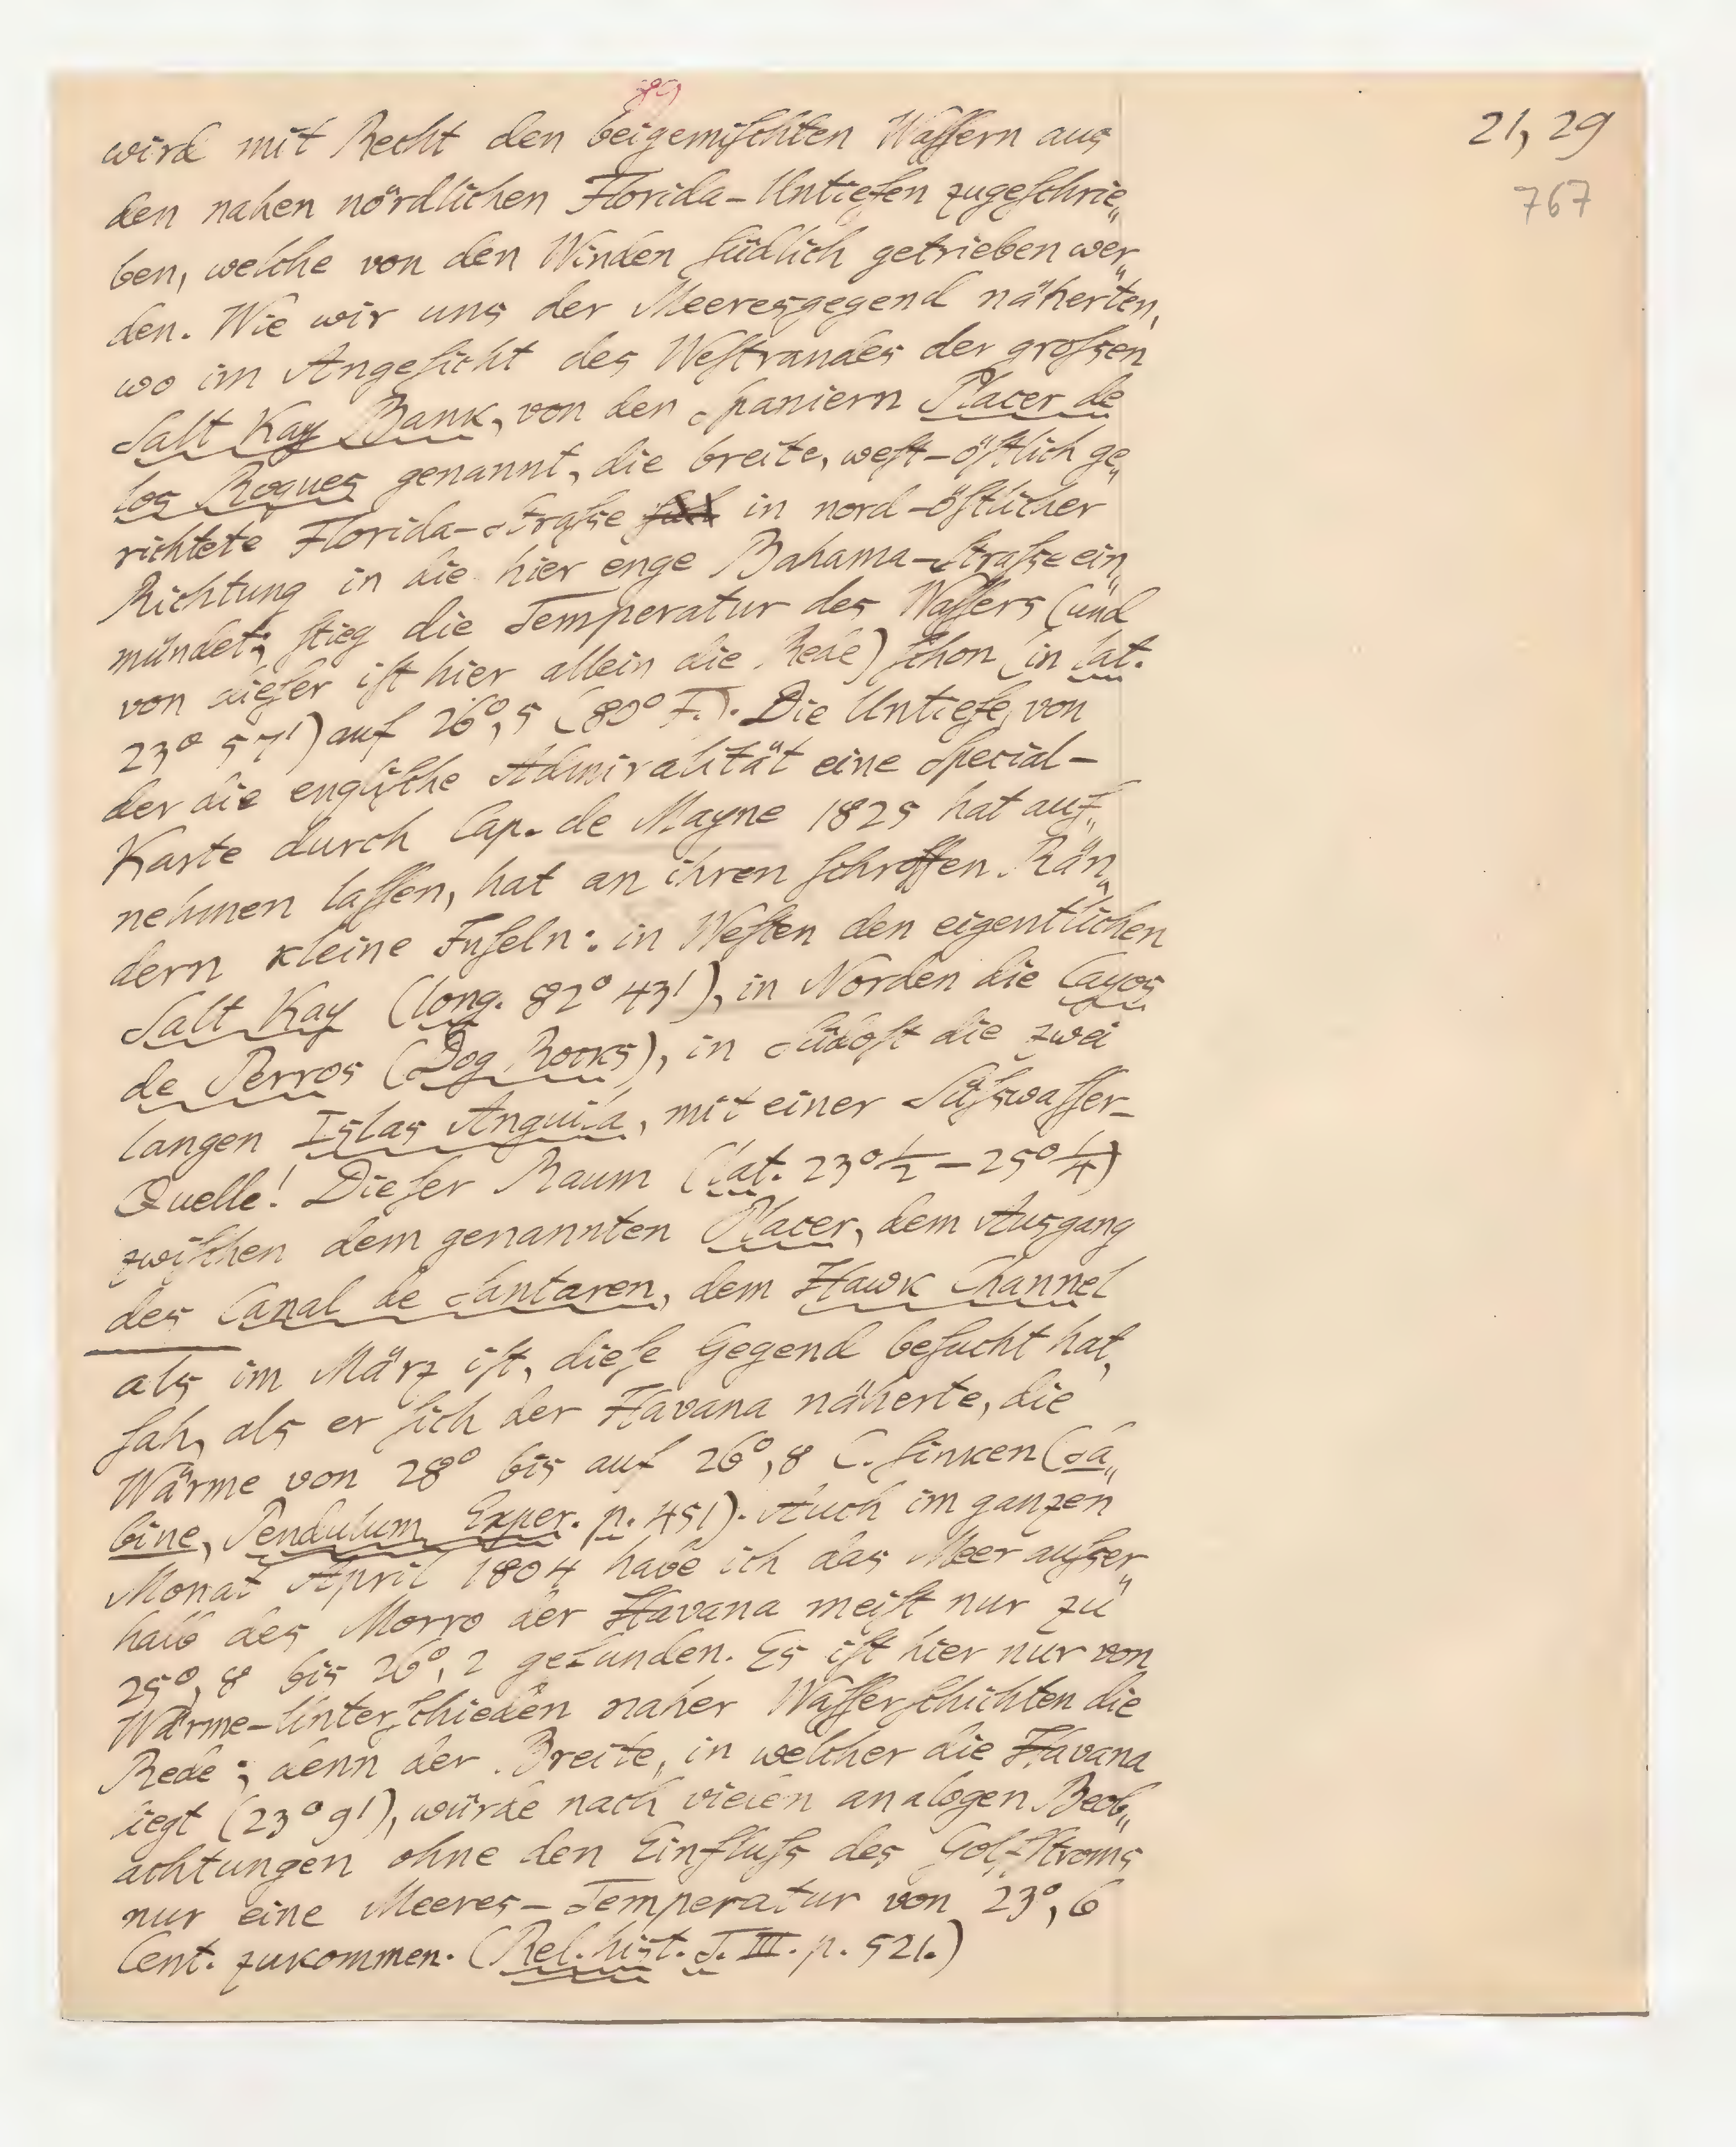 89
21, 29
767
wird mit Recht den beigemischten Wassern aus
den nahen nördlichen Florida-Untiefen zugeschrie„
ben, welche von den Winden südlich getrieben wer„
den. Wie wir uns der Meeresgegend näherten,
wo im Angesicht des Westrandes der grossen
Salt Kay Bank, von den Spaniern Placer de
los Roques genannt, die breite, west-östlich ge„
richtete Florida-Strasse in nord-östlicher
Richtung in die hier enge Bahama-Strasse ein„
mündet; stieg die Temperatur des Wassers (und
von dieser ist hier allein die Rede) schon (in lat.
23° 57') auf 26°,5 (80° F.). Die Untiefe, von
der die englische Admiralität eine Special-
Karte durch Cap. de Mayne 1825 hat auf„
nehmen lassen, hat an ihren schroffen Rän„
dern kleine Inseln: in Westen den eigentlichen
Salt Kay (long. 82° 43'), in Norden die Cayos
de Perros (Dog Rocks), in Südost die zwei
langen Islas Anguila, mit einer Süßwasser-
Quelle! Dieser Raum (lat. 23°½ – 25°¼)
zwischen dem genannten Placer, dem Ausgang
des Canal de Santaren, dem Hawk Channel
als im März ist, diese Gegend besucht hat,
sah, als er sich der Havana näherte, die
Wärme von 28° bis auf 26°,8 C. sinken (Sa„
bine, Pendulum Exper. p. 451). Auch im ganzen
Monat April 1804 habe ich das Meer ausser„
halb des Morro der Havana meist nur zu
25°,8 bis 26°,2 gefunden. Es ist hier nur von
Wärme-Unterschieden naher Wasserschichten die
Rede; denn der Breite, in welcher die Havana
liegt (23° 9'), würde nach vielen analogen Beob„
achtungen ohne den Einfluss des Golfstroms
nur eine Meeres-Temperatur von 23°,6
Cent. zukommen. (Rel. hist. T. III. p. 521.)